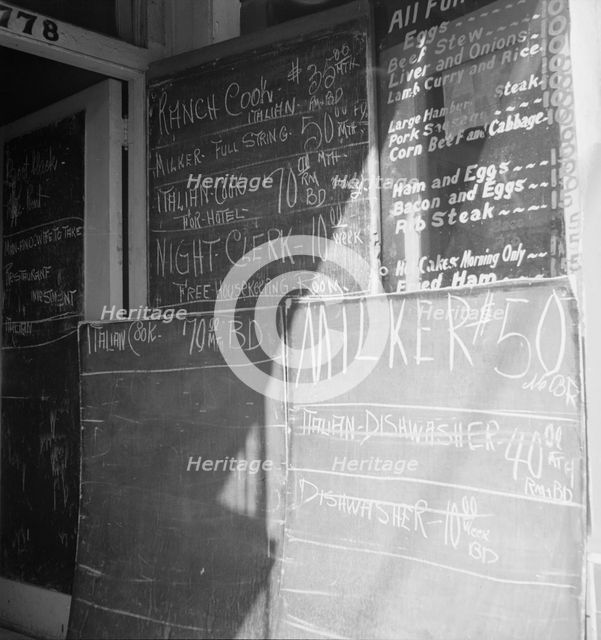 778
RANCH COOK - $35.00 MTH
ITALIAN - RM-BD
MILKER - FULL STRING - 50 00 MTH
ITALIAN - COOK 70 00 MTH
FOR - HOTEL - RM BD
NIGHT - CLERK - 10 00 WEEK
FREE HOUSEKEEPING ROOM
MAN-AND WIFE TO TAKE
RESTAURANT
INVESTMENT
ITALIAN
Eggs
Beef Stew
Liver and Onions
Lamb Curry and Rice
Large Hamburg Steak
Pork Sausages
Corn Beef and Cabbage
Ham and Eggs
Bacon and Eggs
Rib Steak
Hot Cakes Morning Only
Fried Ham
ITALIAN COOK - 70 00 MTH RM BD
MILKER $50
RM BD
ITALIAN - DISHWASHER - 40 00 MTH
RM & BD
DISHWASHER - 10 00 WEEK
BD
Heritage
Heritage
Heritage
Heritage
Heritage
Heritage